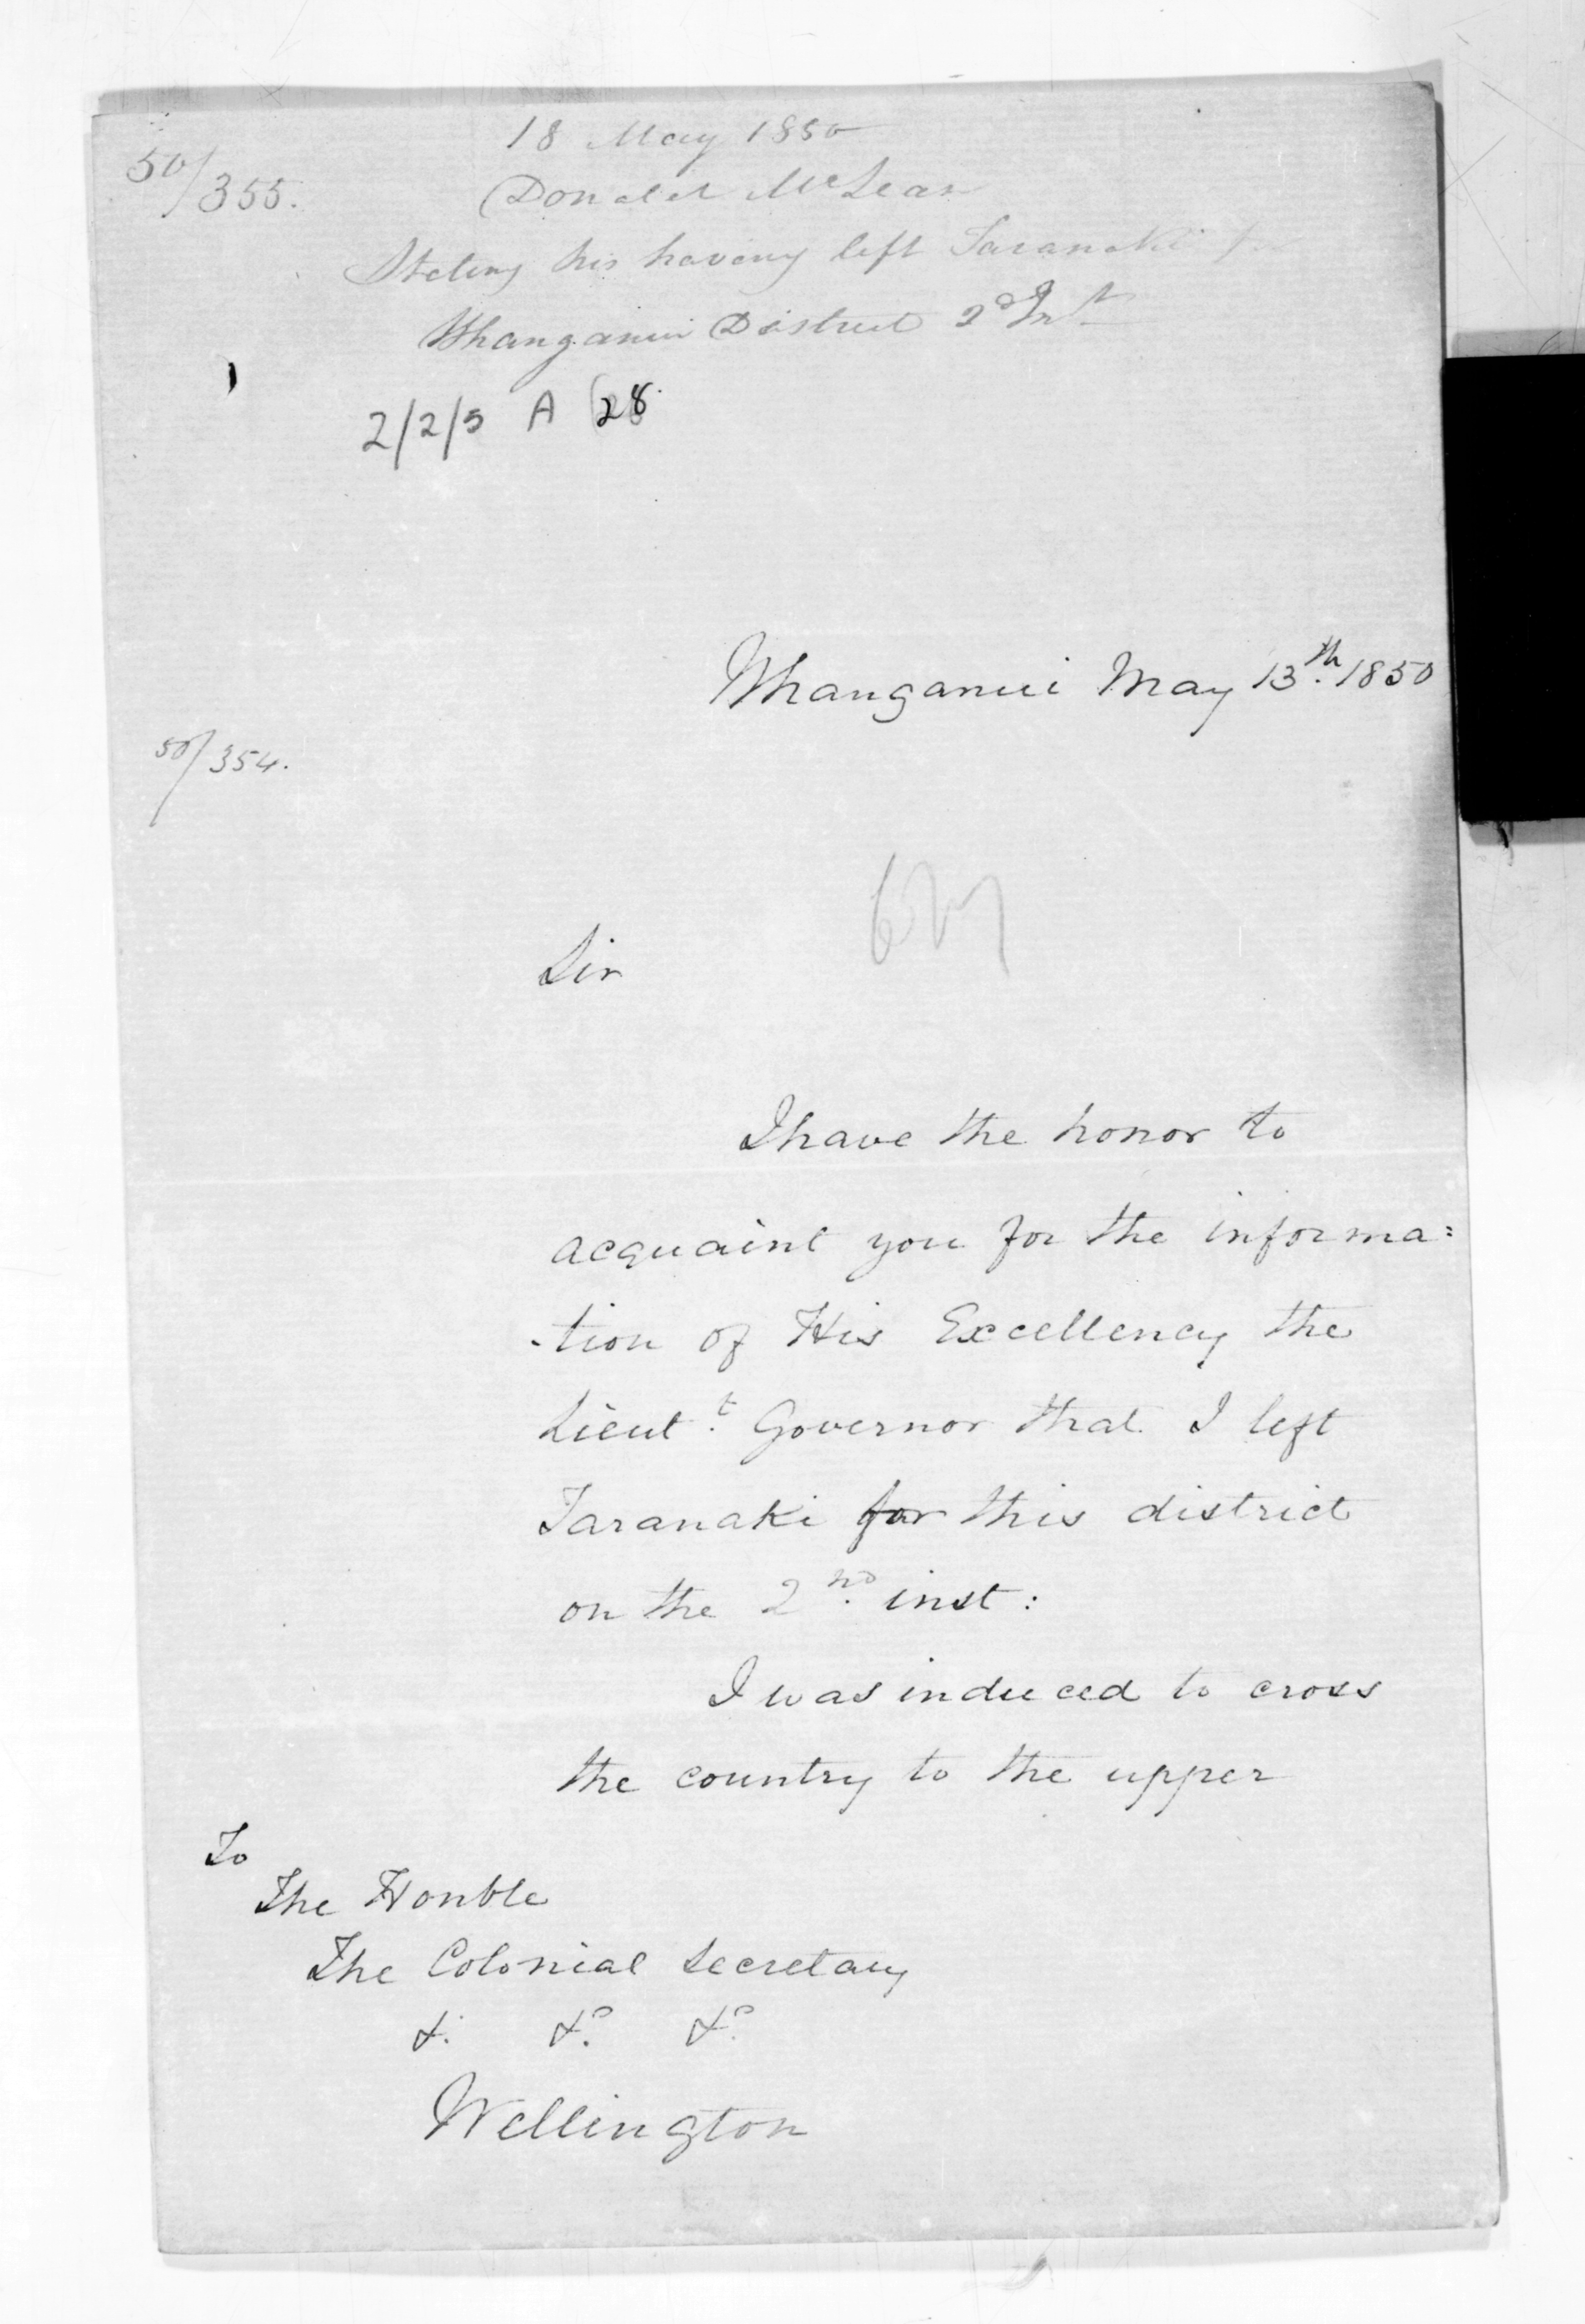 50/355.
18 May 1850
Donald McLean
Stating his having left Taranaki for
Whanganui District 2d Inst
2/2/5 A 28
Whanganui May 13th. 1850
50/354.
Sir
I have the honor to
acquaint you for the informa:
-tion of His Excellency the
Lieut.t Governor that I left
Taranaki for this district
on the 2nd. inst:
I was induced to cross
the country to the upper
To
The Honble
The Colonial Secretary
&. &c. &c.
Wellington